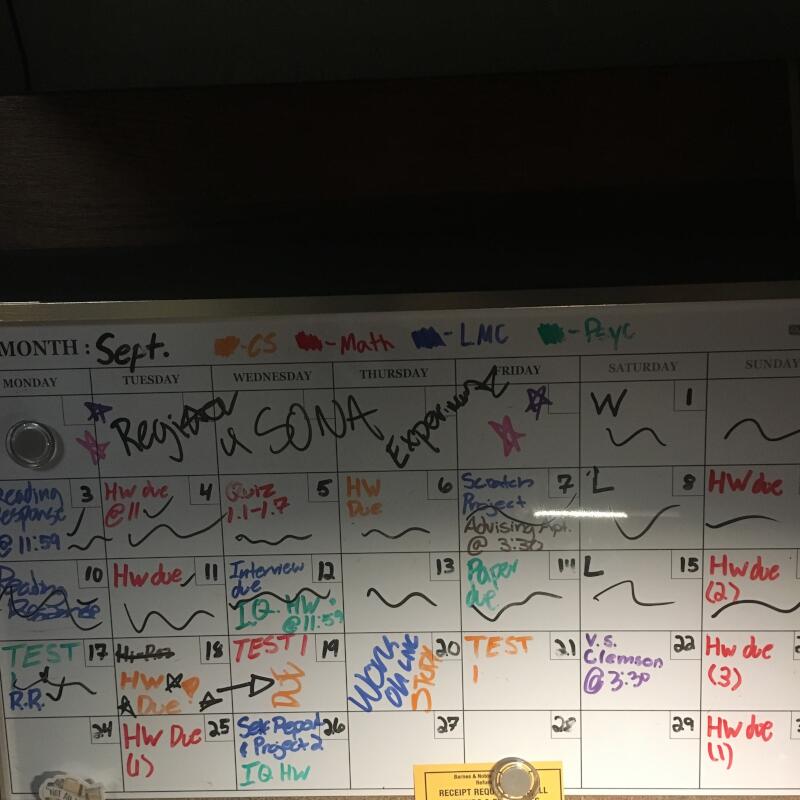 MONTH : Sept. -CS -Math -LMC -Psyc
MONDAY TUESDAY WEDNESDAY THURSDAY FRIDAY SATURDAY SUNDAY
SONA
W 1
Reading Response @ 11:59 3
HW due @ 11 4
Quiz 1.1-1.7 5
HW Due 6
Scratch Project 7
Advising Apt. @ 3:30
L 8
HW due
Reading Response 10
HW due 11
Interview due 12
I.Q. HW @ 11:59
13
Paper due 14
L 15
HW due (2)
TEST 1 17
R.R.
18
HW Due
TEST 1 19
DUE
Work on LMC 20
Study
TEST 1 21
V.S. Clemson @ 3:30 22
HW due (3)
24
HW Due (1) 25
Self Report & Project 2 26
IQ HW
27
28
29
HW due (1)
Barnes & Noble
RECEIPT